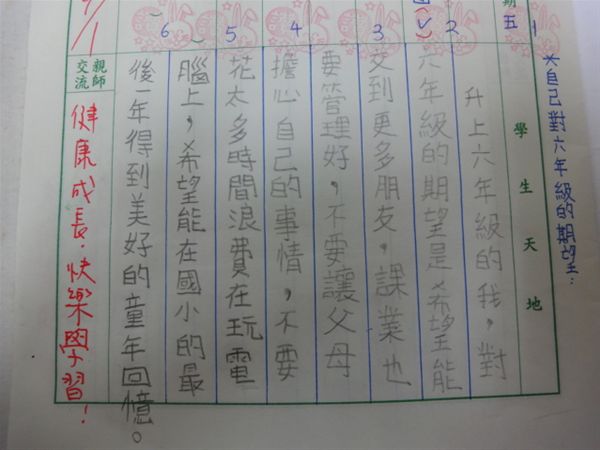 ＊自己對六年級的期望：
學生天地
升上六年級的我，對
六年級的期望是希望能
交到更多朋友，課業也
要管理好，不要讓父母
擔心自己的事情，不要
花太多時間浪費在玩電
腦上，希望能在國小的最
後一年得到美好的童年回憶。
親師交流
健康成長．快樂學習！
期五
1
2
3
4
5
6